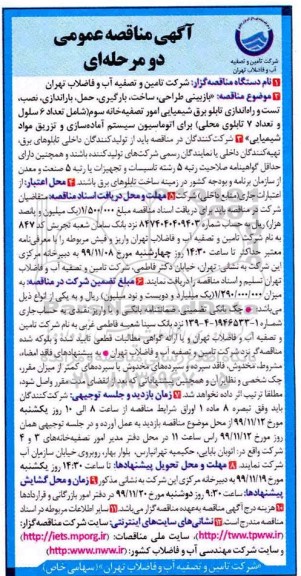 آگهی مناقصه عمومی
دو مرحله‌ای
شرکت تامین و تصفیه
آب و فاضلاب تهران
۱ نام دستگاه مناقصه‌گزار: شرکت تامین و تصفیه آب و فاضلاب تهران
۲ موضوع مناقصه: «بازبینی طراحی، ساخت، بارگیری، حمل، باراندازی، نصب،
تست و راه‌اندازی تابلو برق شیمیایی امور تصفیه‌خانه سوم (شامل تعداد ۶ سلول
و تعداد ۷ تابلوی محلی) برای اتوماسیون سیستم آماده‌سازی و تزریق مواد
شیمیایی» ۳ شرکت‌کنندگان در مناقصه باید از تولیدکنندگان داخلی تابلوهای برق،
تهیه‌کنندگان داخلی یا نمایندگان رسمی شرکت‌های تولیدکننده باشند و همچنین دارای
حداقل گواهینامه صلاحیت رتبه ۵ رشته تاسیسات و تجهیزات یا رتبه ۵ صنعت و معدن
از سازمان برنامه و بودجه کشور در زمینه ساخت تابلوهای برق باشند. ۴ محل اعتبار: از
اعتبارات جاری (منابع داخلی) شرکت ۵ مهلت و محل دریافت اسناد مناقصه: متقاضیان
شرکت در مناقصه باید برای دریافت اسناد مناقصه مبلغ ۱/۵۰۰/۰۰۰ (یک میلیون و پانصد
هزار) ریال به حساب شماره ۸۴۷۴۰۴۰۴۰۹۴۰۳ نزد بانک تجارت کد ۸۴۷
به نام شرکت تامین و تصفیه آب و فاضلاب تهران واریز و فیش مربوطه را با معرفی‌نامه
معتبر حداکثر تا ساعت ۱۴:۳۰ روز چهارشنبه مورخ ۹۹/۱۱/۰۸ به دبیرخانه مرکزی
این شرکت به نشانی: تهران، خیابان دکتر فاطمی شرکت تامین و تصفیه آب و فاضلاب
تهران تسلیم و اسناد مناقصه را دریافت نمایند. ۶ مبلغ تضمین شرکت در مناقصه: به
میزان ۱/۲۹۰/۰۰۰/۰۰۰ (یک میلیارد و دویست و نود میلیون) ریال و به یکی از انواع ذیل
می‌باشد: چک بانکی تضمین شده ضمانتنامه بانکی یا واریز نقدی به حساب جاری
شماره ۱-۱۹۴۶۵۳۳-۴-۱۳۹ نزد بانک سینا شعبه فاطمی غربی به نام شرکت تامین و
تصفیه آب و فاضلاب تهران و یا ارائه گواهی مطالبات قطعی تایید شده و بلوکه شده
مناقصه‌گر نزد شرکت تامین و تصفیه آب و فاضلاب تهران به پیشنهادهای فاقد امضاء،
مشروط، مخدوش، فاقد سپرده و سپرده‌های مخدوش یا سپرده‌های کمتر از میزان مقرر،
چک شخصی و نظایر آن و همچنین پیشنهاداتی که بعد از انقضای مدت مقرر واصل شود،
مطلقا ترتیب اثر داده نخواهد شد. ۷ زمان بازدید و جلسه توجیهی: شرکت‌کنندگان
باید وفق تبصره ۸ ماده ۱ اوراق شرایط مناقصه از ساعت ۸ الی ۱۰ روز یکشنبه
مورخ ۹۹/۱۱/۱۲ از محل موضوع مناقصه بازدید به عمل آورده و در جلسه توجیهی همان
روز مورخ ۹۹/۱۱/۱۲ راس ساعت ۱۱ در محل دفتر مدیر امور تصفیه‌خانه‌های ۳ و ۴
شرکت واقع در: اتوبان بابایی، حکیمیه تهرانپارس، بلوار بهار، روبروی خیابان سازمان آب
شرکت نمایند. ۸ مهلت و محل تحویل پیشنهادها: تا ساعت ۱۴:۳۰ روز یکشنبه
مورخ ۹۹/۱۱/۱۹ به دبیرخانه مرکزی شرکت به نشانی مذکور ۹ زمان و محل گشایش
پیشنهادها: ساعت ۹:۳۰ روز دوشنبه مورخ ۹۹/۱۱/۲۰ در دفتر امور بازرگانی و قراردادها
۱۰ هزینه درج آگهی مناقصه به‌عهده مناقصه‌گزار می‌باشد. ۱۱ سایر اطلاعات مربوطه در اسناد
مناقصه مندرج است. ۱۲ نشانی‌های سایت‌های اینترنتی: سایت شرکت مناقصه‌گزار:
(http://www.tpww.ir)، سایت ملی مناقصات: (http://iets.mporg.ir)
و سایت شرکت مهندسی آب و فاضلاب کشور: (http:www.nww.ir)
«شرکت تامین و تصفیه آب و فاضلاب تهران» (سهامی خاص)